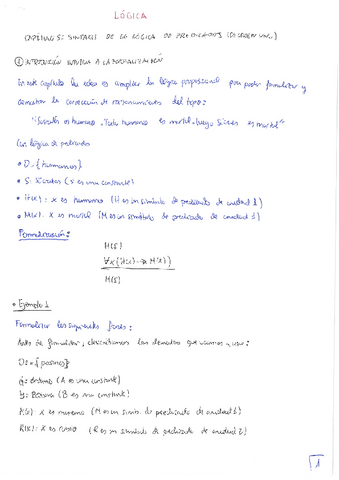 LÓGICA
CAPÍTULO 5: SINTAXIS DE LA LÓGICA DE PREDICADOS (DE ORDEN UNO)
① INTRODUCCIÓN INTUITIVA A LA FORMALIZACIÓN
En este capítulo la idea es ampliar la lógica proposicional para poder formalizar y
demostrar la corrección de razonamientos del tipo:
"Sócrates es humano. Todo humano es mortal. Luego Sócrates es mortal"
Con lógica de predicados
• D = {humanos}
• S: Sócrates (S es una constante)
• H(x): x es humano (H es un símbolo de predicado de aridad 1)
• M(x): x es mortal (M es un símbolo de predicado de aridad 1)
Formalización:
H(S)
∀x{H(x) → M(x)}
M(S)
• Ejemplo 1
Formalizar las siguientes frases:
Antes de formalizar, describimos los elementos que vamos a usar:
D = {personas}
(A es una constante)
(B es una constante)
x es moreno (M es un símb. de predicado de aridad 1)
R(x): x es rubio (R es un símbolo de predicado de aridad 1)
1